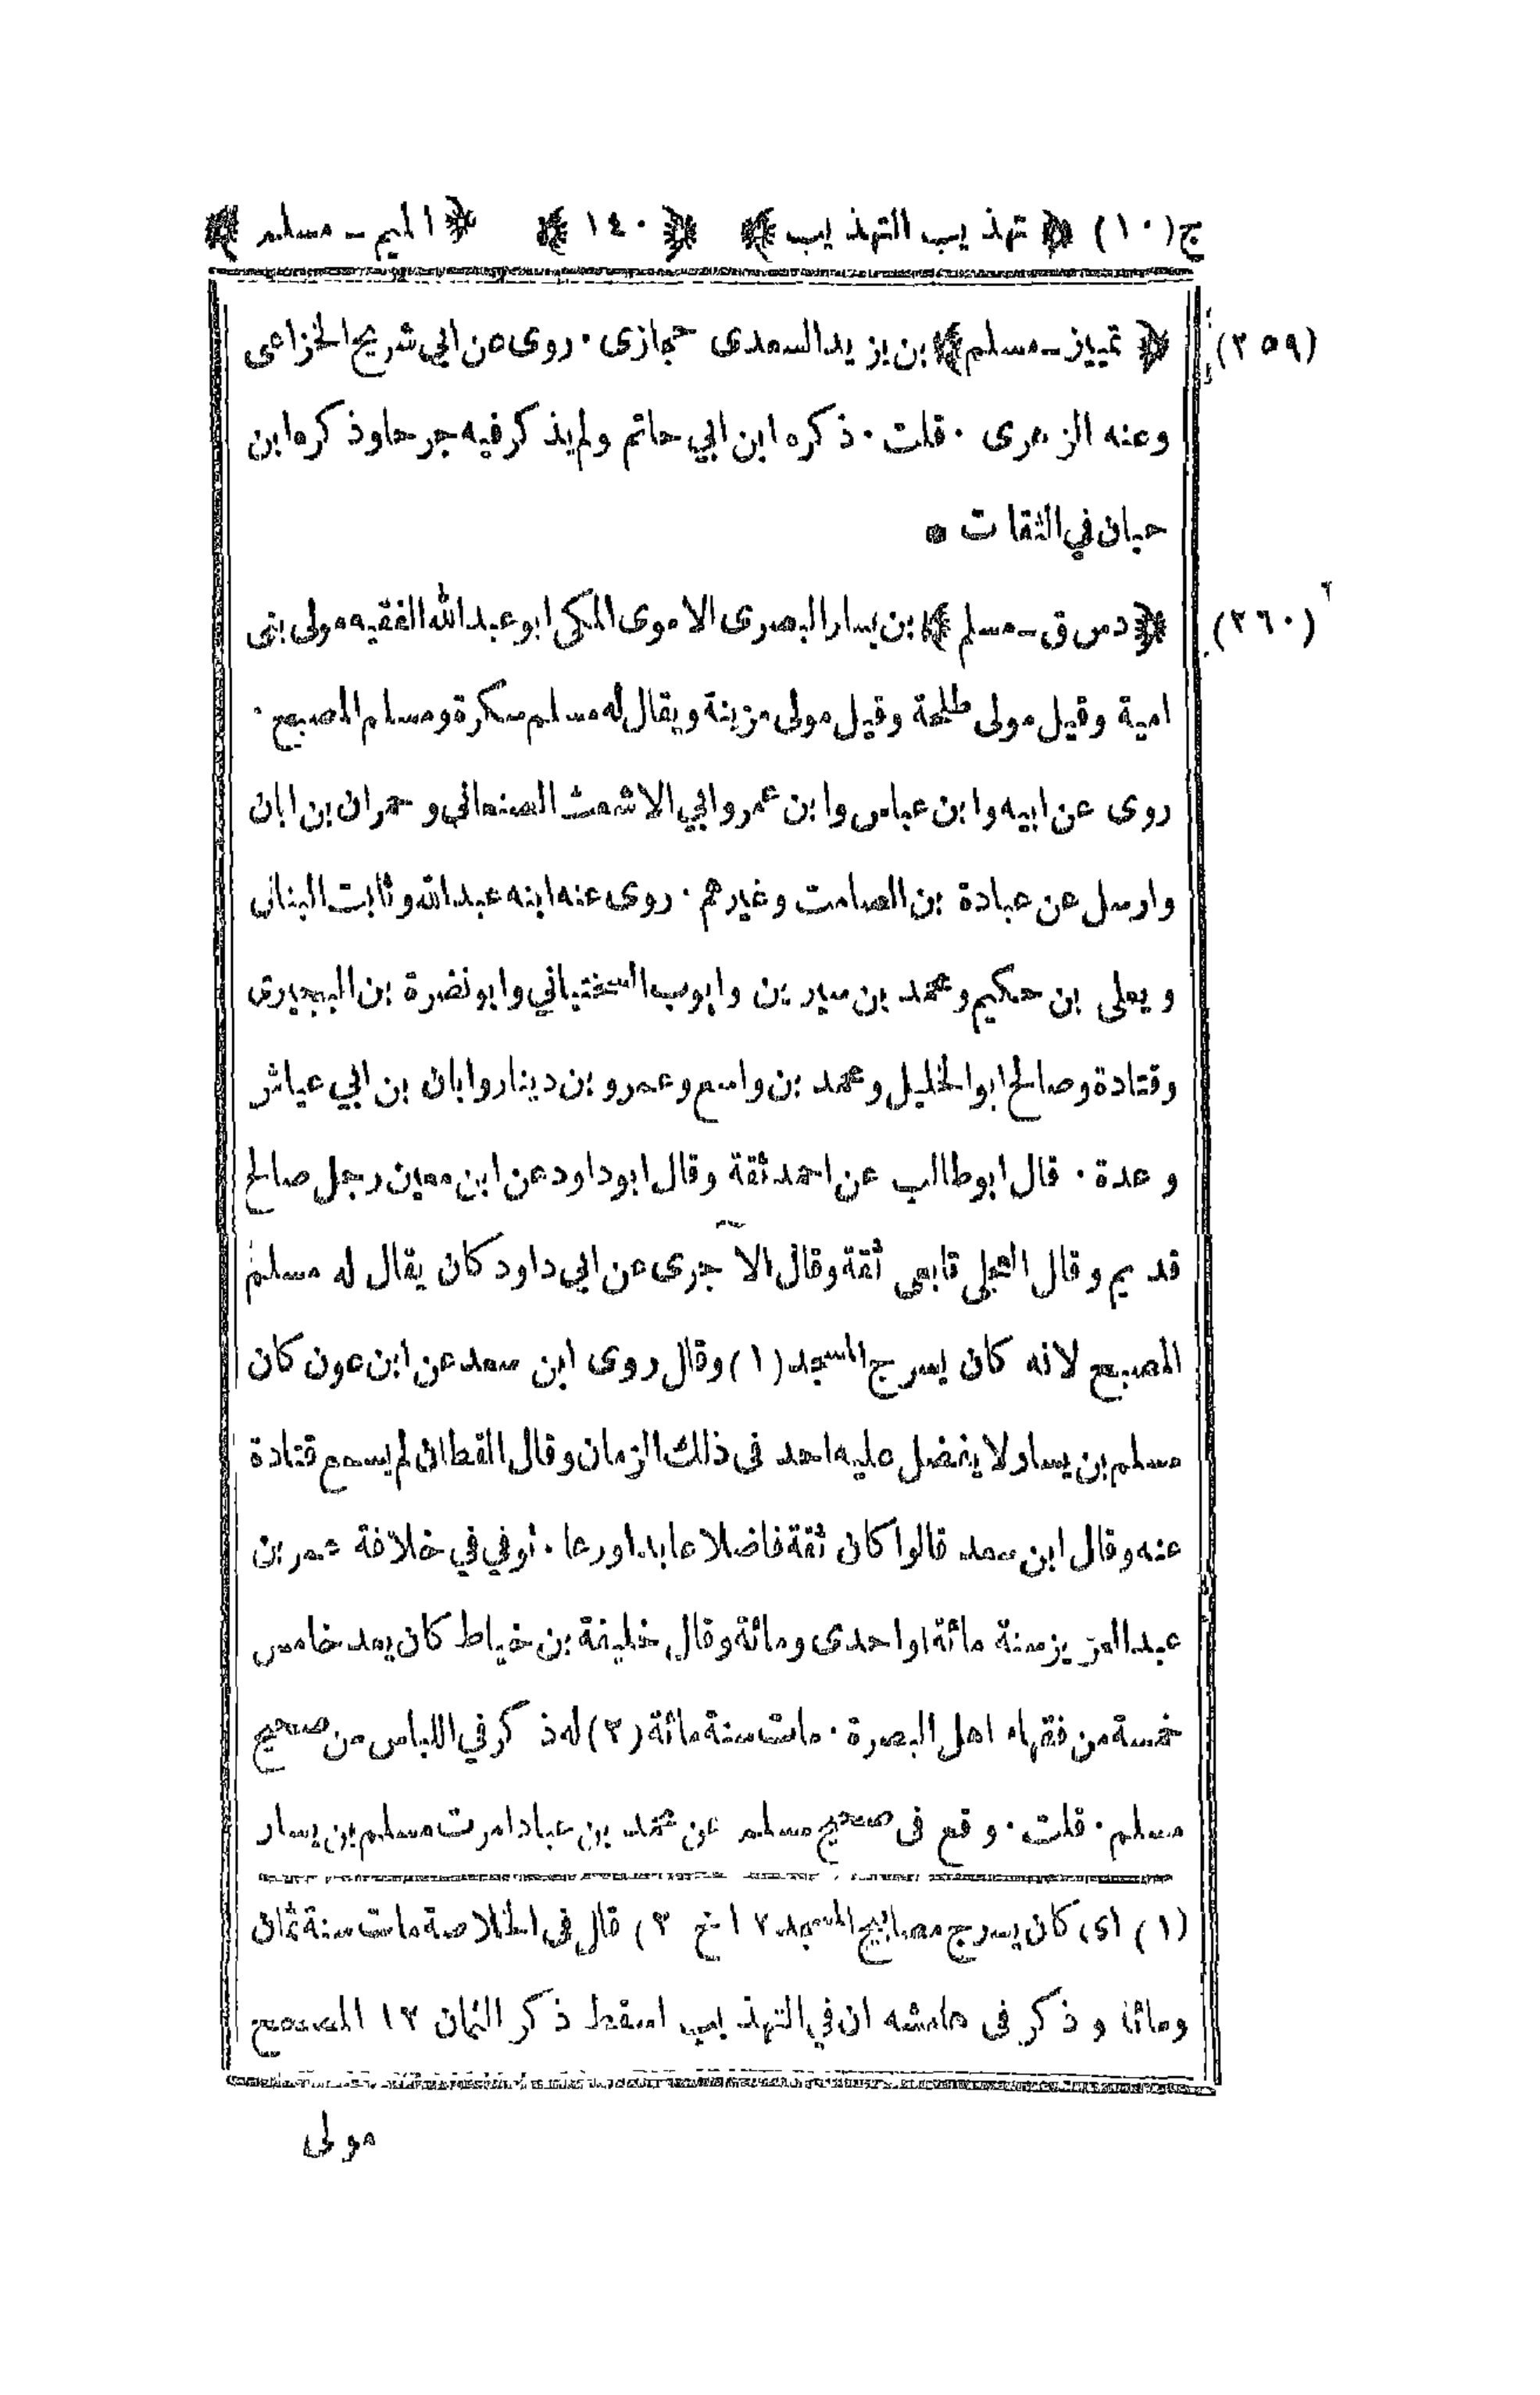 ج(١٠) ﴿تهذيب التهذيب﴾ ﴿١٤٠﴾ ﴿الميم ـ مسلم﴾
(٢٥٩) ﴿تمييز ـ مسلم﴾ بن يزيد السعدى حجازى · روى عن ابي شريح الخزاعى
وعنه الزهرى · قلت · ذكره ابن ابي حاتم ولم يذكر فيه جرحا وذكره ابن
حبان في الثقات *
(٢٦٠) ﴿د س ق ـ مسلم﴾ بن يسار البصرى الاموى المكي ابو عبد الله الفقيه مولى بنى
امية وقيل مولى طلحة وقيل مولى مزينة ويقال له مسلم سكرة ومسلم المصبح ·
روى عن ابيه وابن عباس وابن عمر وابي الاشعث الصنعاني وحمران بن ابان
وارسل عن عبادة بن الصامت وغيرهم · روى عنه ابنه عبد الله وثابت البنانى
ويعلى بن حكيم ومحمد بن سيرين وايوب السختياني وابو نضرة بن
وقتادة وصالح ابو الخليل ومحمد بن واسع وعمرو بن دينار وابان بن ابي عياش
وعدة · قال ابو طالب عن احمد ثقة وقال ابو داود عن ابن معين رجل صالح
قديم وقال العجلي تابعى ثقة وقال الآجرى عن ابي داود كان يقال له مسلم
المصبح لانه كان يسرج المسجد (١) وقال روى ابن سعد عن ابن عون كان
مسلم بن يسار لا يفضل عليه احد فى ذلك الزمان وقال القطان لم يسمع قتادة
عنه وقال ابن سعد قالوا كان ثقة فاضلا عابدا ورعا · توفي في خلافة عمر بن
عبد العزيز سنة مائة او احدى ومائة وقال خليفة بن خياط كان يعد خامس
خمسة من فقهاء اهل البصرة · مات سنة مائة (٢) له ذكر في اللباس من صحيح
مسلم · قلت · وقع فى صحيح مسلم عن محمد بن عباد امرت مسلم بن يسار
(١) اى كان يسرج مصابيح المسجد ١٢ خ (٢) قال فى الخلاصة مات سنة ثمان
ومائة وذكر فى هامشه ان في التهذيب اسقط ذكر الثمان ١٢ المصحح
مولى